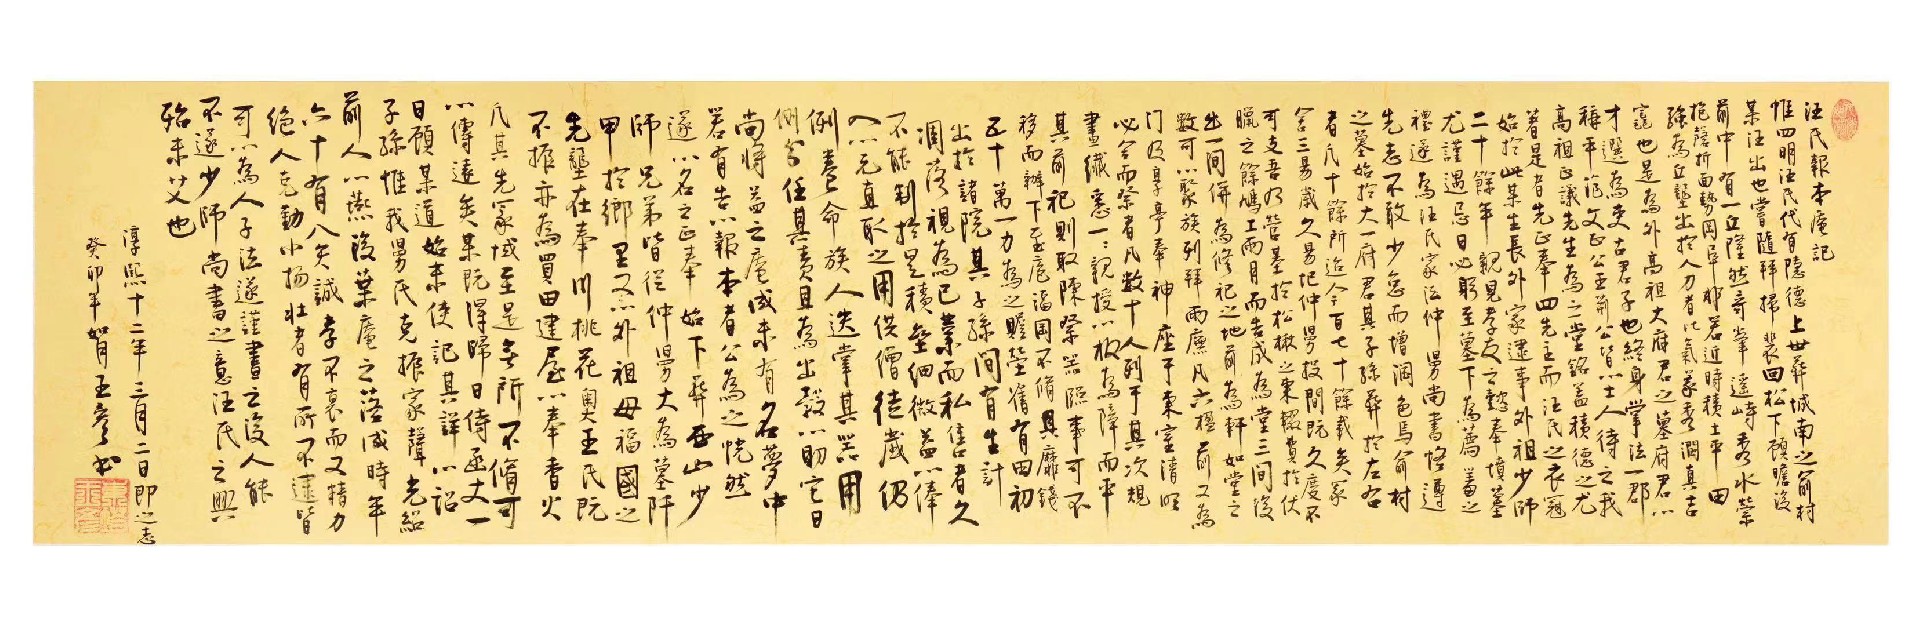 汪氏報本庵記
惟四明汪氏代有隱德上世葬城南之俞村
某汪出也嘗隨拜掃裴回松下顧瞻後
前中有一丘隆然奇峯遥峙秀水縈
抱蔭折面勢岡阜耶若近時積土平田
強為丘壟出於人力者比氣象秀潤真吉
寔也是為外高祖大府君之墓府君以
才選為吏古君子也終身掌法一郡
稱平范文正公王荊公皆以士人待之我
高祖正議先生為之堂銘蓋積德之尤
著是者先正奉四先主而汪氏之衣冠
始於此某生長外家逮事外祖少師
二十餘年親見孝友之懿奉墳墓
尤謹遇忌日必躬至墓下為薦羞之
禮遂為汪氏家法仲舅尚書恪遵
先志不敢少怠而增潤色焉俞村
之墓始於大一府君其子孫葬於左右
者凡十餘所迨今百七十餘載矣冢
舍三易歲久易圮仲舅投閒既久度不
可支吾乃營基於松楸之東輟費於伏
臘之餘鳩工兩月而告成為堂三間後
出一間併為修祀之地前為軒如堂之
數可以聚族列拜兩廡凡六楹前又為
门及享亭奉神座于東室清明
必合而祭者凡數十人列于其次規
畫纖悉一親授以板為障而平
其前祀則取陳祭器臨事可不
移而辦下至庖湢困不脩具靡錢
五十萬一力為之贍塋舊有田初
出於諸院其子孫間有生計
凋落視為己業而私售者久
不能制於是積壘細微益以俸
入以元直取之用供僧徒歲仍
例養命族人迭掌其器用
例當任其責且為出穀以助它日
尚將益之庵成未有名夢中
若有告以報本者公為之恍然
遂以名之正奉始下葬西山少
師兄弟皆從仲舅大為墓阡
甲於鄉里又以外祖母福國之
先壟在奉川桃花奧王氏既
不振亦為買田建屋以奉香火
凡其先冢域至是無所不脩可
以傳遠矣某既得歸日侍函丈一
日顧某道始末使記其詳以詔
子孫惟我舅氏克振家聲光紹
前人以燕後葉庵之落成時年
六十有八矣誠孝不衰而又精力
絕人克勤小物壯者有所不逮皆
可以為人子法遂謹書之後人能
不遂少師尚書之意汪氏之興
殆未艾也
淳熙十二年三月二日即之志
癸卯年如月王彥書